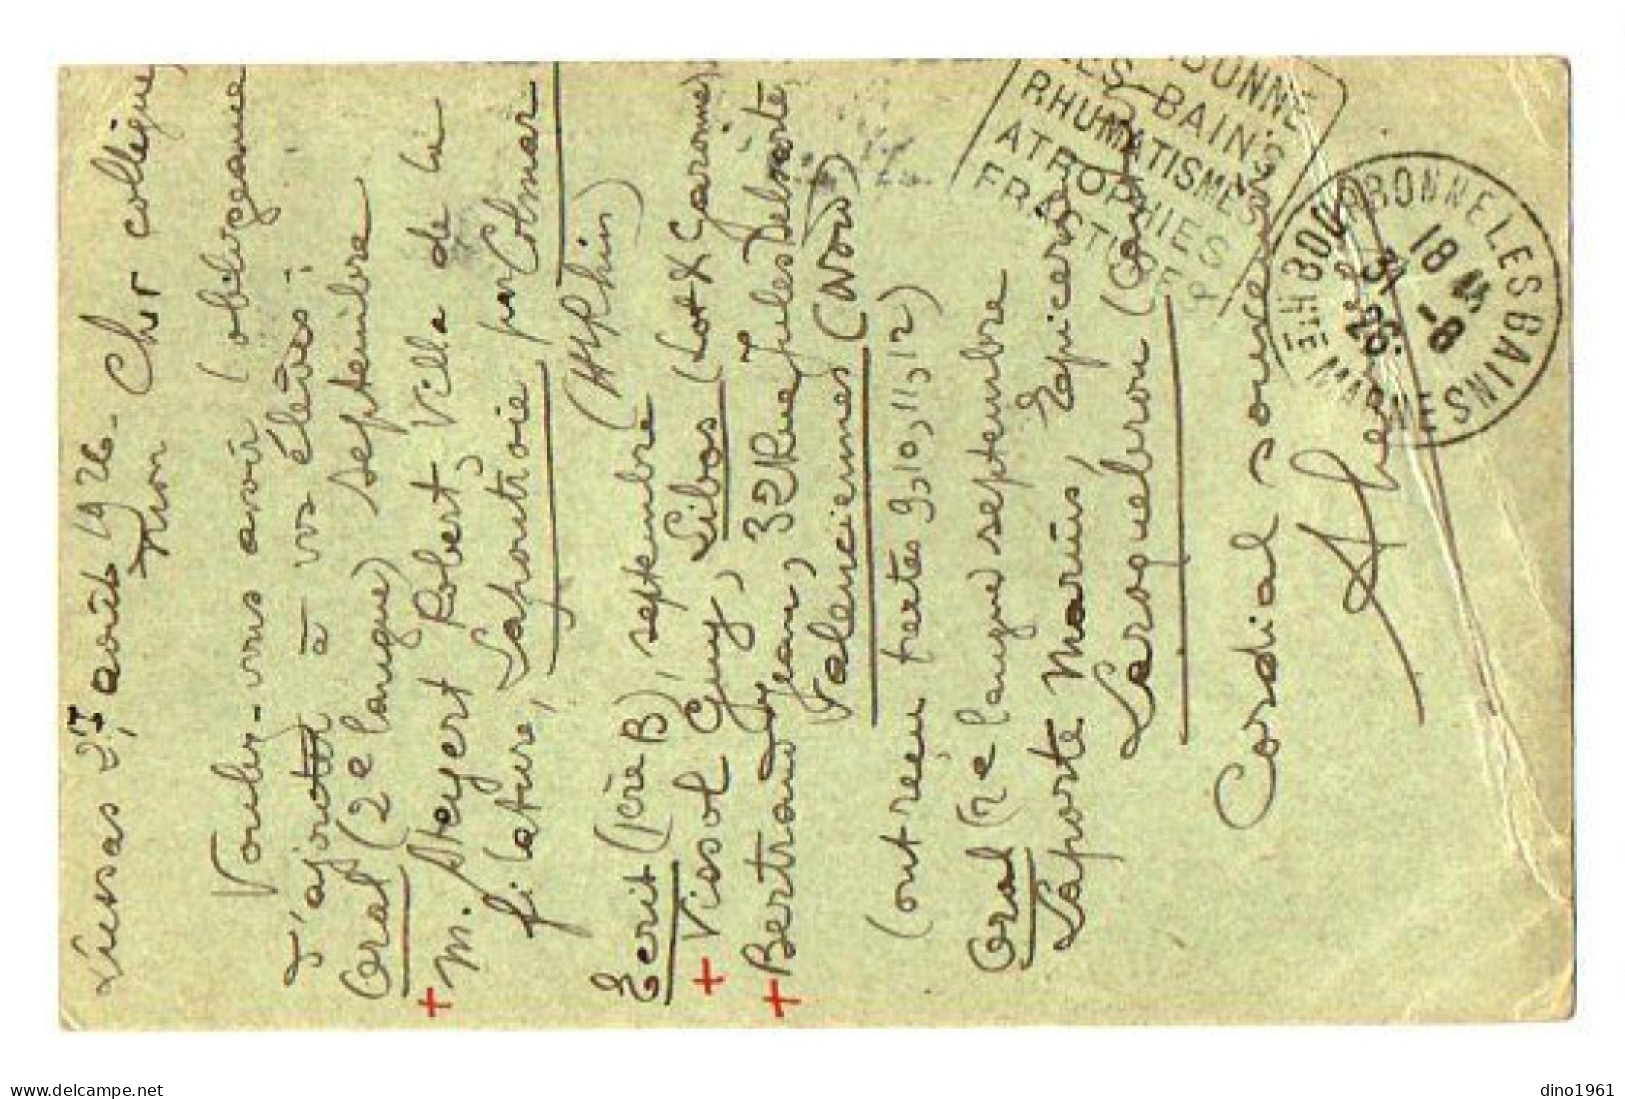 Lussas 27 août 1926. Cher collègue,
Voulez-vous avoir l'obligeance
d'ajouter à vos élèves :
Oral (2e langue) septembre
+ M. Meyert Robert, Villa de la
filature, Lapoutroie par Colmar
(Ht Rhin)
Ecrit (1ère B), septembre
+ Visol Guy, Libos (Lot & Garonne)
+ Bertrand Jean, 32 Rue Jules Delsarte
Valenciennes (Nord)
(ont reçu textes 9, 10, 11, 12)
Oral (2e langue septembre
Laporte Marius, Epicerie
Laroquebrou (Cantal)
Cordial souvenir
BOURBONNE
LES-BAINS
RHUMATISMES
ATROPHIES
FRACTURES
BOURBONNE LES BAINS
18 
31 -8
26
HTE MARNE
delcampe.net
dino1961